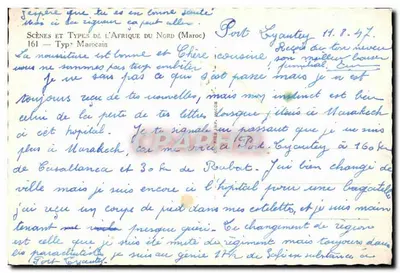 J'espère que tu es en bonne santé
et si ça
Port Lyautey 11.8.47
SCÈNES ET TYPES DE L'AFRIQUE DU NORD (Maroc)
161 — Type Marocain
La nourriture est bonne et
nous ne sommes pas trop embêtés
Chère cousine
Reçois de ton neveu
son meilleur baiser
Je ne sais pas ce qui s'est passé mais je n'ai
toujours reçu de tes nouvelles, mais mon instinct est bien
celui de la perte de tes lettres lorsque j'étais à Marakech
à cet hôpital. Je te signale en passant que je ne suis
plus à Marakech Port Lyautey à 160 km
de Casablanca et 30 km de Rabat. J'ai bien changé de
ville mais je suis encore à l'hôpital pour une bagatelle
j'ai reçu un coup de pied dans mes côtelettes, et je suis main
tenant presque guéri. Ce changement de région
est celle que je suis muté de régiment mais toujours dans
les parachutistes je suis au génie
Port Lyautey